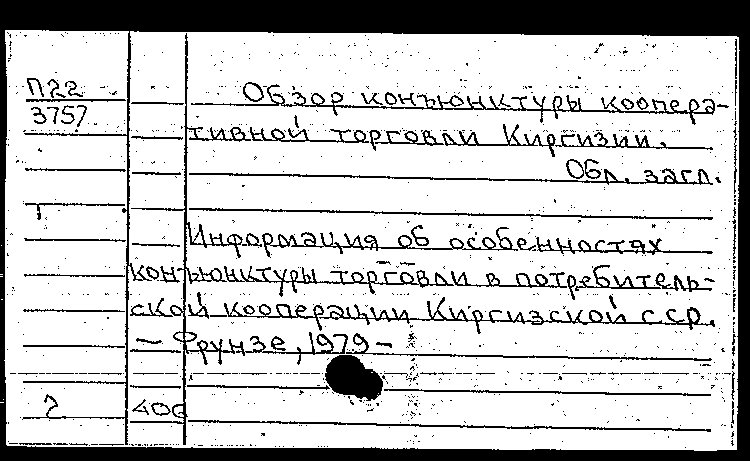 П22
3757
Обзор конъюнктуры коопера-
тивной торговли Киргизии.
Обл. загл.
Т
Информация об особенностях
конъюнктуры торговли в потребитель-
ской кооперации Киргизской ССР.
— Фрунзе, 1979 —
2 406